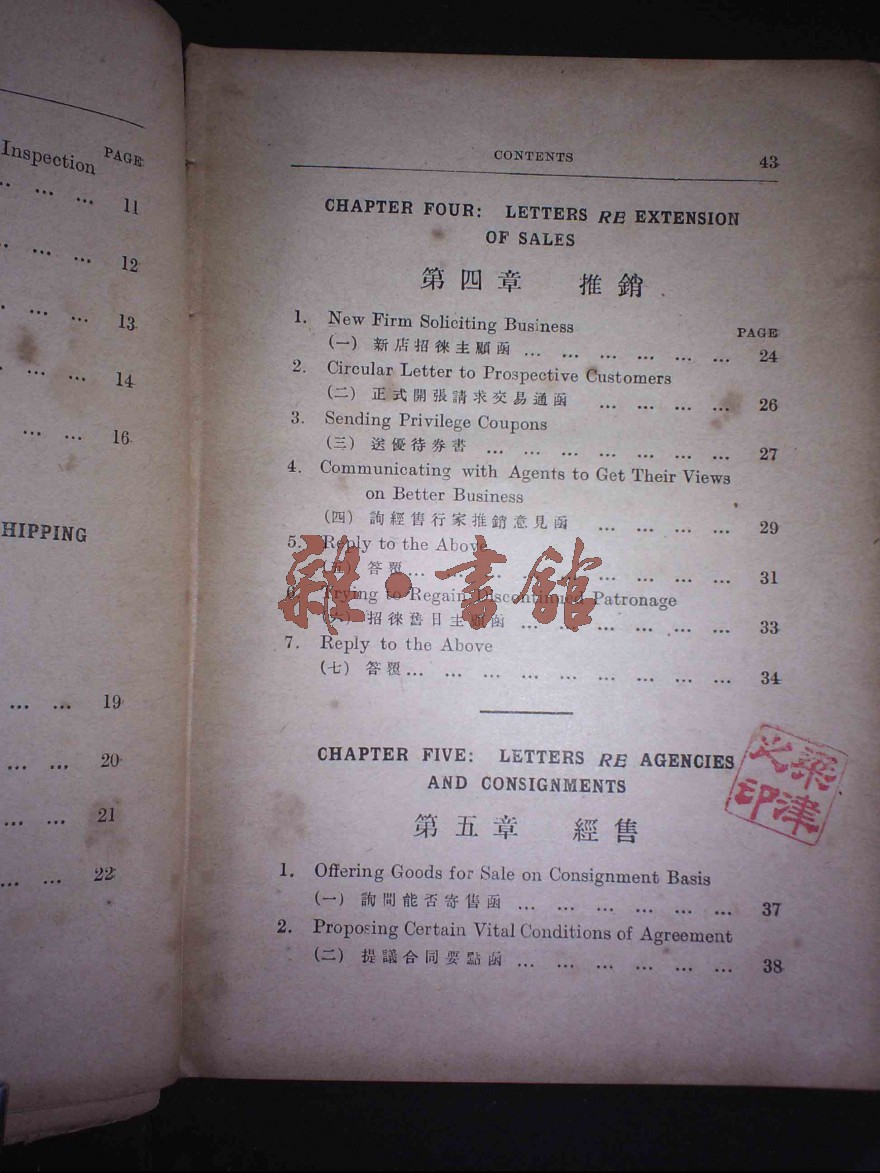 Inspection PAGE
... ... 11
... ... 12
... ... 13
... ... 14
... ... 16
HIPPING
... ... 19
... ... 20
... ... 21
... ... 22
CONTENTS 43
CHAPTER FOUR: LETTERS RE EXTENSION
OF SALES
第四章 推銷
1. New Firm Soliciting Business PAGE
(一) 新店招徠主顧函 ... ... ... ... ... ... 24
2. Circular Letter to Prospective Customers
(二) 正式開張請求交易通函 ... ... ... ... 26
3. Sending Privilege Coupons
(三) 送優待券書 ... ... ... ... ... ... ... 27
4. Communicating with Agents to Get Their Views
on Better Business
(四) 詢經售行家推銷意見函 ... ... ... ... 29
5. Reply to the Above
(五) 答覆 ... ... ... ... ... ... ... ... ... 31
6. Trying to Regain Discontinued Patronage
(六) 招徠舊日主顧函 ... ... ... ... ... ... 33
7. Reply to the Above
(七) 答覆 ... ... ... ... ... ... ... ... ... 34
CHAPTER FIVE: LETTERS RE AGENCIES
AND CONSIGNMENTS
第五章 經售
1. Offering Goods for Sale on Consignment Basis
(一) 詢問能否寄售函 ... ... ... ... ... ... 37
2. Proposing Certain Vital Conditions of Agreement
(二) 提議合同要點函 ... ... ... ... ... ... 38
雜·書舘
梁津
之印